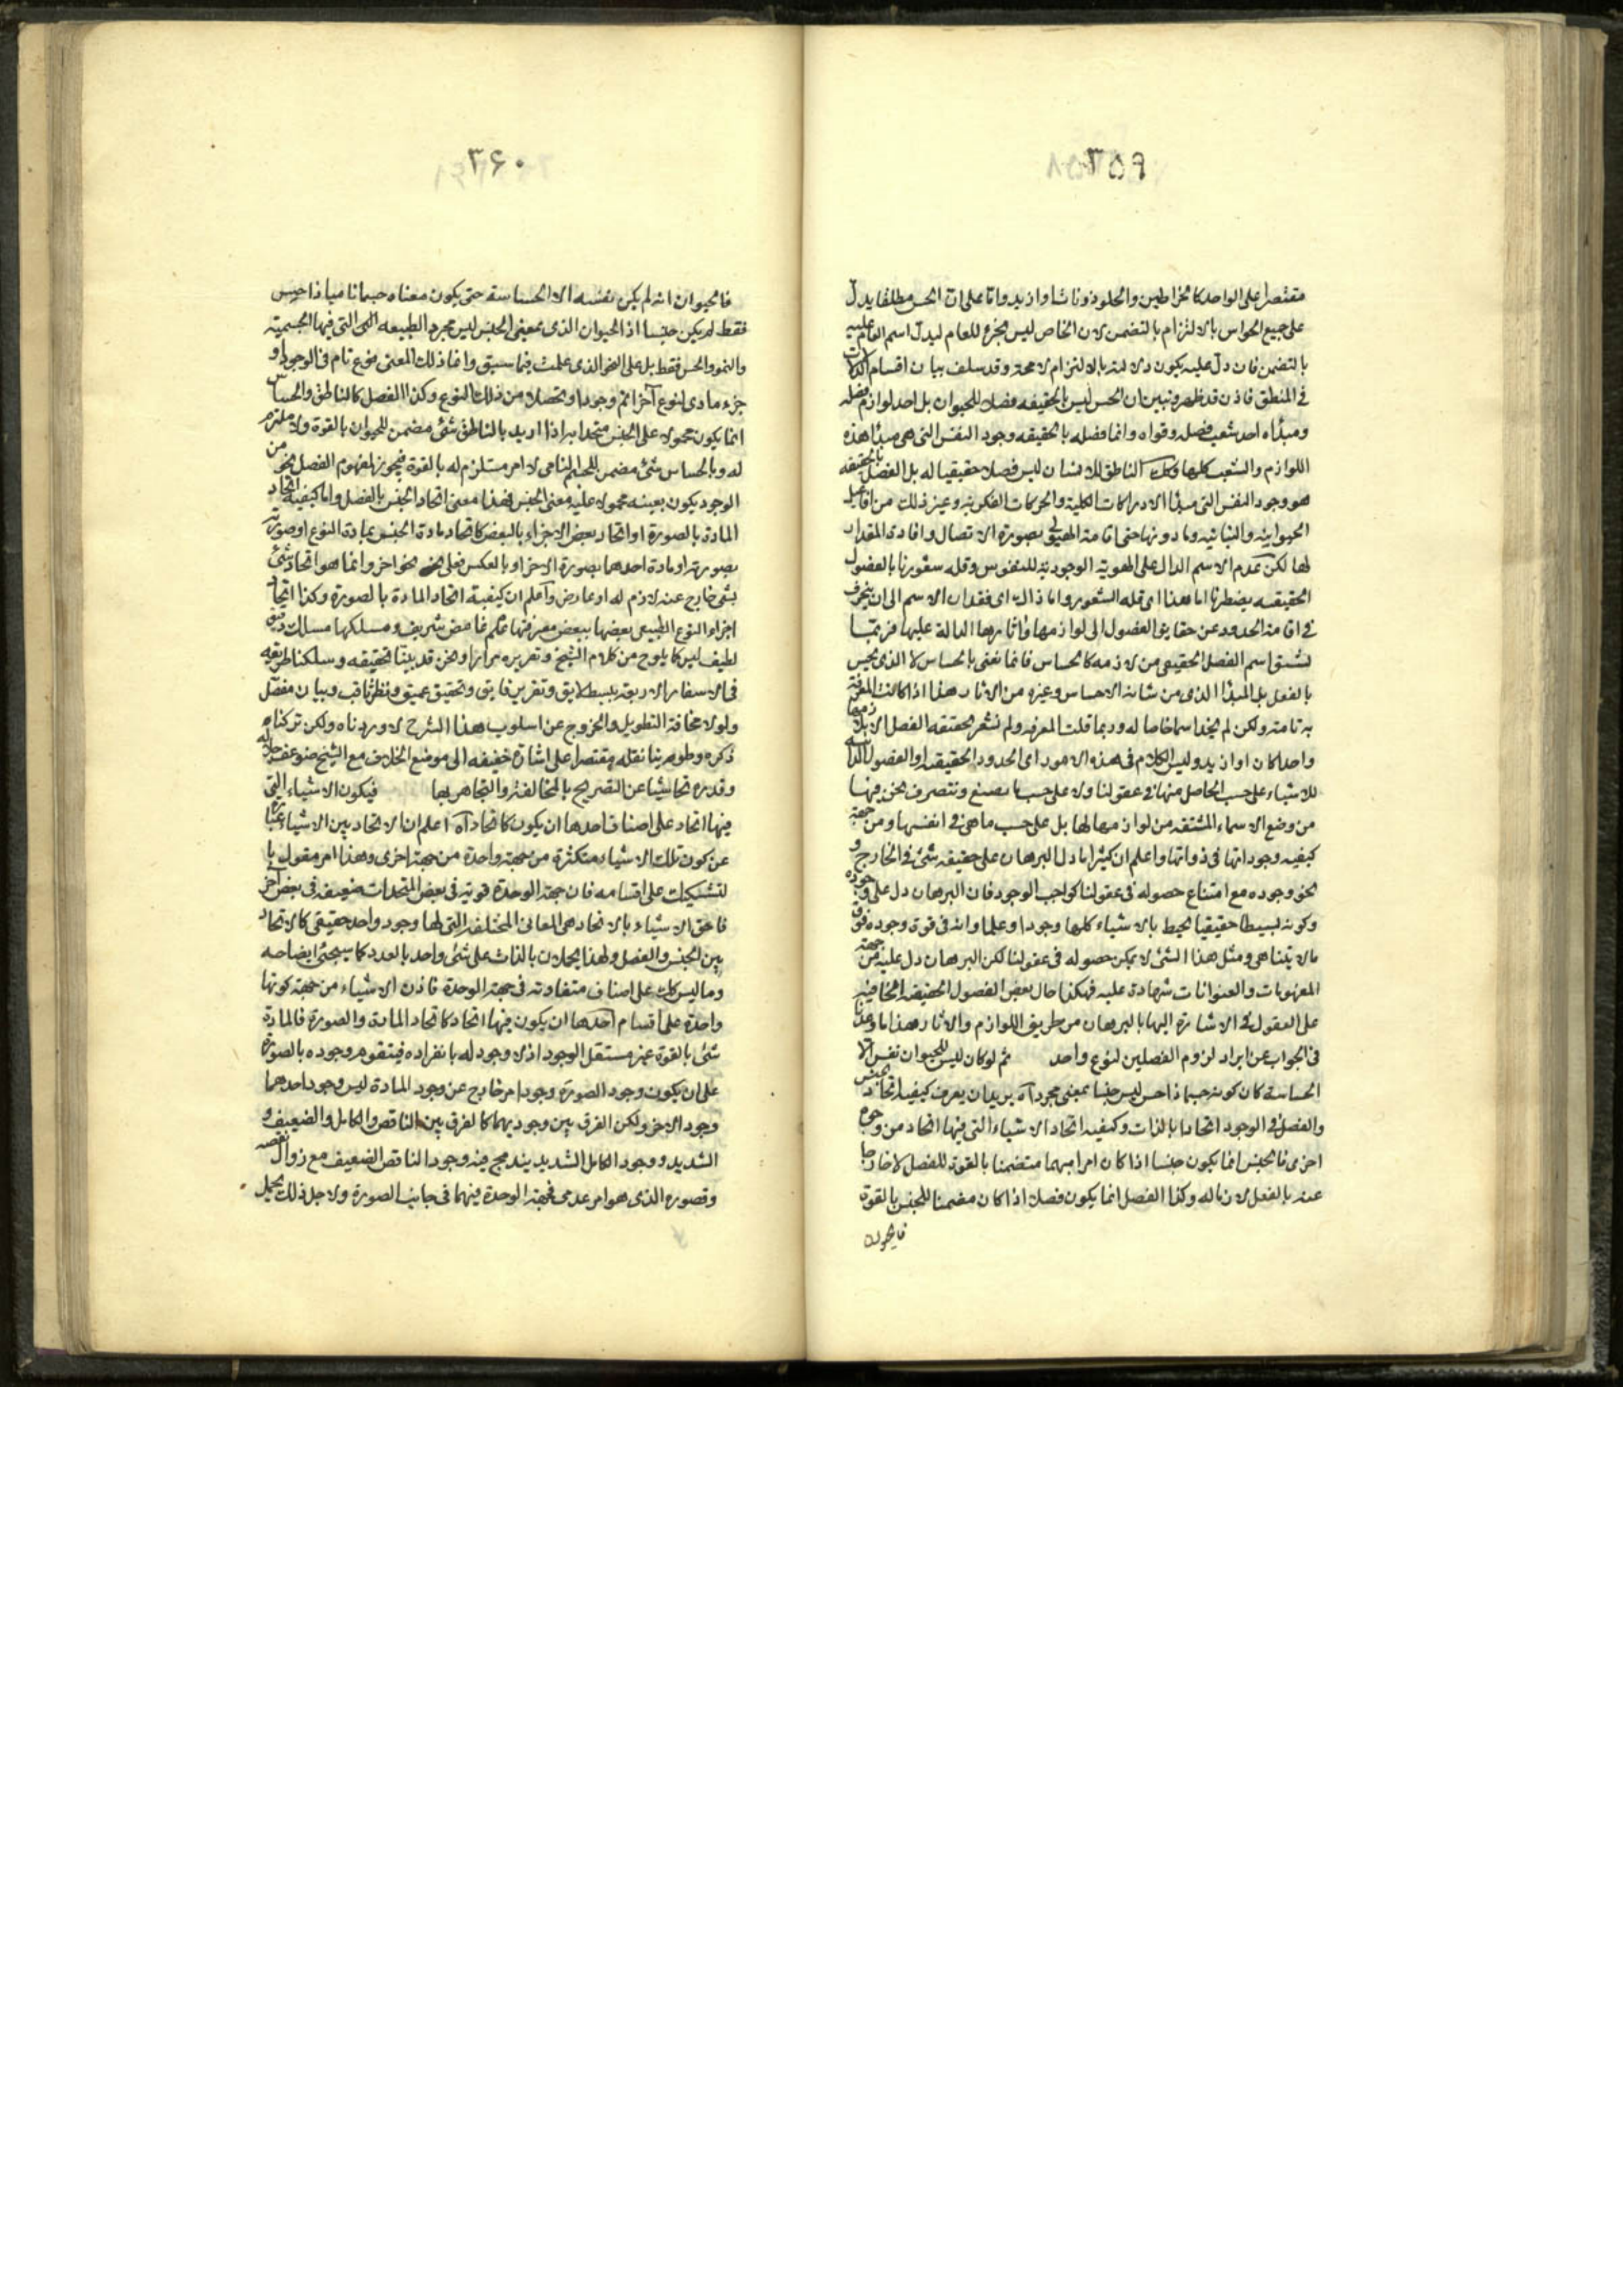 ٣٥٩
مقتصرا على الواحد كالخراطين والحلزونات او ازيد واما على ان الحس مطلقا يدل
على جميع الحواس بالالتزام بالتضمن لان الخاص ليس بجزء للعام ليدل اسم العام عليه
بالتضمن فان دل عليه يكون دلالته بالالتزام لا محة وقد سلف بيان اقسام الدلالات
في المنطق فاذن قد ظهر وتبين ان الحس ليس بالحقيقه فصلا للحيوان بل احد لوازم فصله
ومبدأه احد شعب فصله وقواه وانما فصله بالحقيقه وجود النفس التى هى مبدأ هذه
اللوازم والشعب كلها وكك الناطق للانسان ليس فصلا حقيقيا له بل الفصل بالحقيقه
هو وجود النفس التى مبدأ الادراكات الكلية والحركات الفكريه وغير ذلك من افاعيل
الحيوانيه والنباتيه وما دونها حتى اقامة الهيولى بصورة الاتصال وافادة المقدار
لها لكن عدم الاسم الدال على الهوية الوجودية للنفوس وقله شعورنا بالفصول
الحقيقيه يضطرنا اما هذا اى قله الشعور واما ذاك اى فقدان الاسم الى ان ننحرف
في اقامة الحدود عن حقايق الفصول الى لوازمها واثارها الدالة عليها فربما
نشتق اسم الفصل الحقيقى من لازمه كالحساس فانما نعنى بالحساس لا الذى يحس
بالفعل بل المبدأ الذى من شانه الاحساس وغيره من الاثار هذا اذا كانت المعرفة
به تامة ولكن لم يجد اسما خاصا له وربما قلت المعرفه ولم نشعر بحقيقه الفصل الا بلازمها
واحدا كان او ازيد وليس الكلام فى هذه الامور اى الحدود الحقيقيه او الفصول الذاتيه
للاشياء على حسب الحاصل منها فى عقولنا ولا على حسب ما نصنع ونتصرف نحن فيها
من وضع الاسماء المشتقه من لوازمها لها بل على حسب ما هى فى انفسها ومن جهة
كيفيه وجوداتها فى ذواتها واعلم ان كثيرا ما دل البرهان على حقيقه شئ فى الخارج و
نحو وجوده مع امتناع حصوله فى عقولنا كواجب الوجود فان البرهان دل على وجوده
وكونه بسيطا حقيقيا يحيط بالاشياء كلها وجودا وعلما وانه فى قوة وجوده فوق
ما لا يتناهى ومثل هذا الشئ لا يمكن حصوله فى عقولنا لكن البرهان دل عليه من جهة
المفهومات والعنوانات شهادة عليه فهكذا حال بعض الفصول الحقيقه الخافيه
على العقول فى الاشارة اليها بالبرهان من طريق اللوازم والاثار وهذا ما وعدنا
فى الجواب عن ايراد لزوم الفصلين لنوع واحد ثم لو كان ليس للحيوان نفس الا
الحساسة كان كونه جسما ذا حس ليس جنسا بمعنى مجرد آه يريد ان يعرف كيفيه اتحاد الجنس
والفصل فى الوجود اتحادا بالذات وكيفيه اتحاد الاشياء التى فيها اتحاد من وجوه
اخرى فالجنس انما يكون جنسا اذا كان امرا مبهما متضمنا بالقوة للفصل لا خارجا
عنه بالفعل لازما له وكذا الفصل انما يكون فصلا اذا كان مضمنا للجنس بالقوة
فالحيوان
٣۶٠
فالحيوان انه لم يكن نفسه الا الحساسة حتى يكون معناه جسما ناميا ذا حس
فقط لم يكن جنسا اذ الحيوان الذى بمعنى الجنس ليس مجرد الطبيعه التى فيها الجسميه
والنمو والحس فقط بل على النحو الذى علمت فيما سبق وانما ذلك المعنى نوع تام فى الوجود او
جزء مادى لنوع آخر اتم وجودا وتحصلا من ذلك النوع وكذا الفصل كالناطق والحساس
انما يكون محمولا على الجنس متحدا به اذا اريد بالناطق شئ مضمن للحيوان بالقوة ولا ملتزم
له وبالحساس شئ مضمن للجسم النامى لا امر مستلزم له بالقوة فيجوز لمفهوم الفصل نحو من
الوجود يكون بعينه محمولا عليه معنى الجنس فهذا معنى اتحاد الجنس بالفصل واما كيفيه اتحاد
المادة بالصورة او اتحاد بعض الاجزاء بالبعض كاتحاد مادة الجنس بمادة النوع او صورته
بصورته او مادة احدهما بصورة الاخر او بالعكس فعلى نحو اخر وانما هو اتحاد شئ
بشئ خارج عنه لازم له او عارض واعلم ان كيفية اتحاد المادة بالصورة وكذا اتحاد
اجزاء النوع الطبيعى بعضها ببعض معرفتها علم غامض شريف ومسلكها مسلك دقيق
لطيف ليس كما يلوح من كلام الشيخ وتقريره مرارا ونحن قد بينا تحقيقه وسلكنا طريقه
فى الاسفار الاربعة ببسط لايق وتقرير فايق وتحقيق عميق ونظر ثاقب وبيان مفصل
ولولا مخافة التطويل والخروج عن اسلوب هذا الشرح لاوردناه ولكن تركنا
ذكره وطوينا نقله مقتصرا على اشارة خفيفه الى موضع الخلاف مع الشيخ
وقدره تحاشيا عن التصريح بالمخالفة والتجاهر بها فيكون الاشياء التى
فيها اتحاد على اصناف احدها ان يكون كاتحاد آه اعلم ان الاتحاد بين الاشياء عبارة
عن كون تلك الاشياء متكثرة من جهة واحدة من جهة اخرى وهذا امر مقول با
لتشكيك على اقسامه فان جهة الوحدة قوية فى بعض المتحدات ضعيفه فى بعض آخر
فاحق الاشياء بالاتحاد هى المعانى المختلفة التى لها وجود واحد حقيقى كالاتحاد
بين الجنس والفصل ولهذا يحملان بالذات على شئ واحد بالعدد كما سيجئ ايضاحه
وما ليس كك على اصناف متفاوته فى جهة الوحدة فاذن الاشياء من جهة كونها
واحدة على اقسام احدها ان يكون فيها اتحاد كاتحاد المادة والصورة فالمادة
شئ بالقوة غير مستقل الوجود اذ لا وجود له بانفراده فيتقوم وجوده بالصورة
على ان يكون وجود الصورة وجود امر خارج عن وجود المادة ليس وجود احدهما
وجود الاخر ولكن الفرق بين وجوديهما كالفرق بين الناقص والكامل والضعيف و
الشديد ووجود الكامل الشديد يندمج فيه وجود الناقص الضعيف مع زوال نقصه
وقصوره الذى هو امر عدمى فجهة الوحدة فيهما فى جانب الصورة ولاجل ذلك يحمل